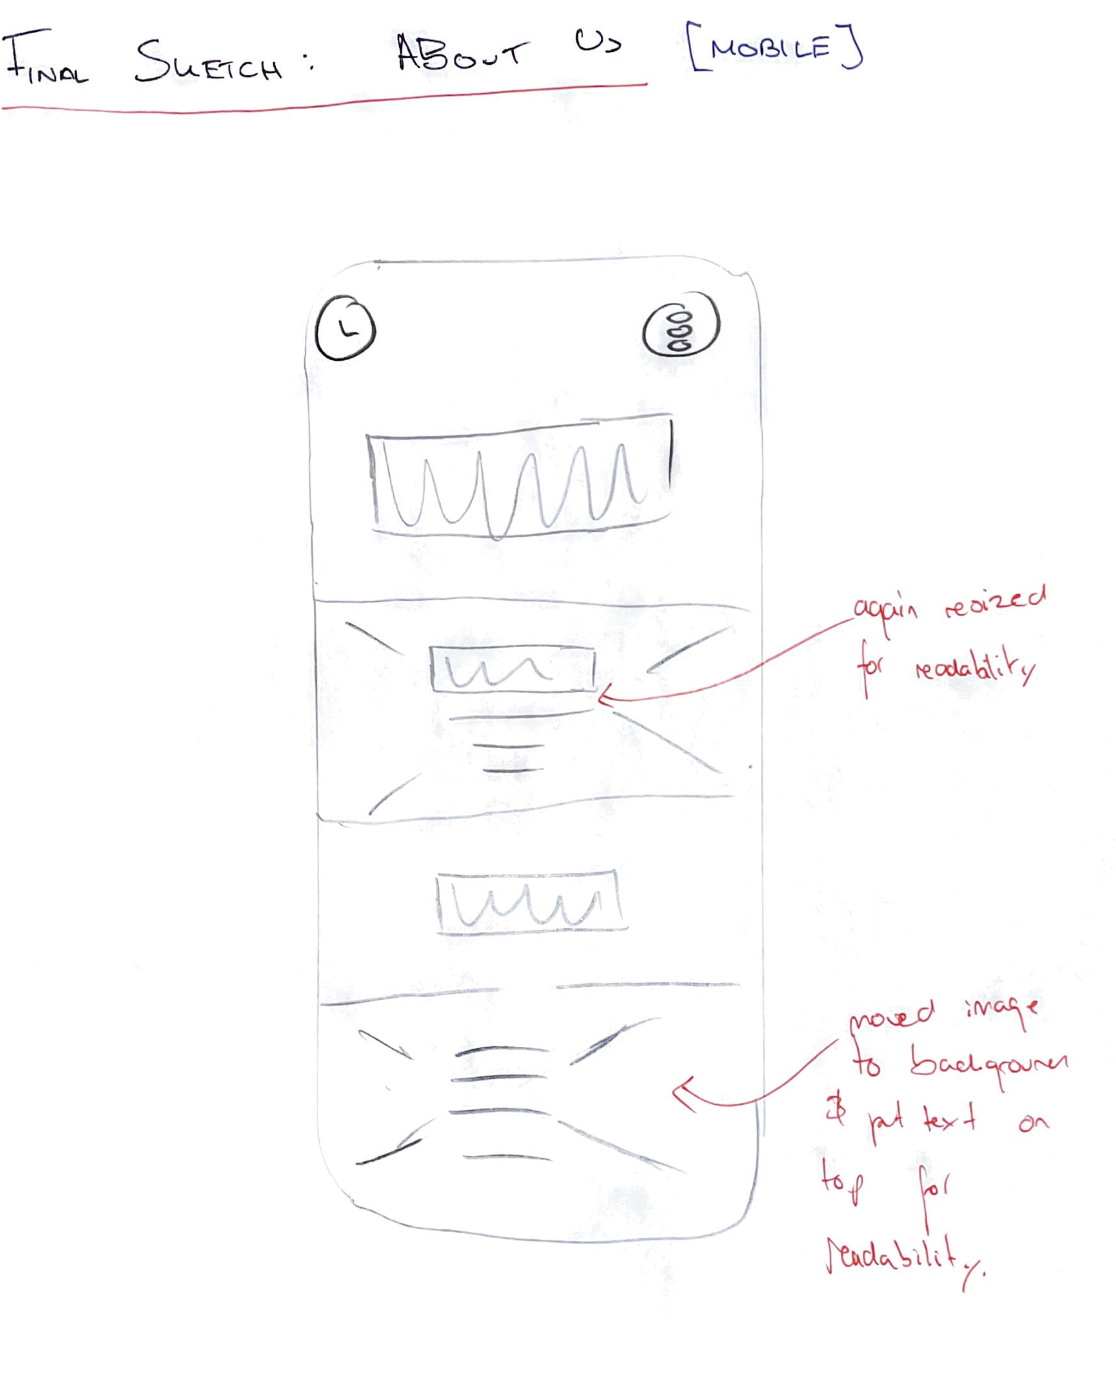 FINAL SKETCH: ABOUT US [MOBILE]
L
again resized
for readability
moved image
to background
& put text on
top for
readability.